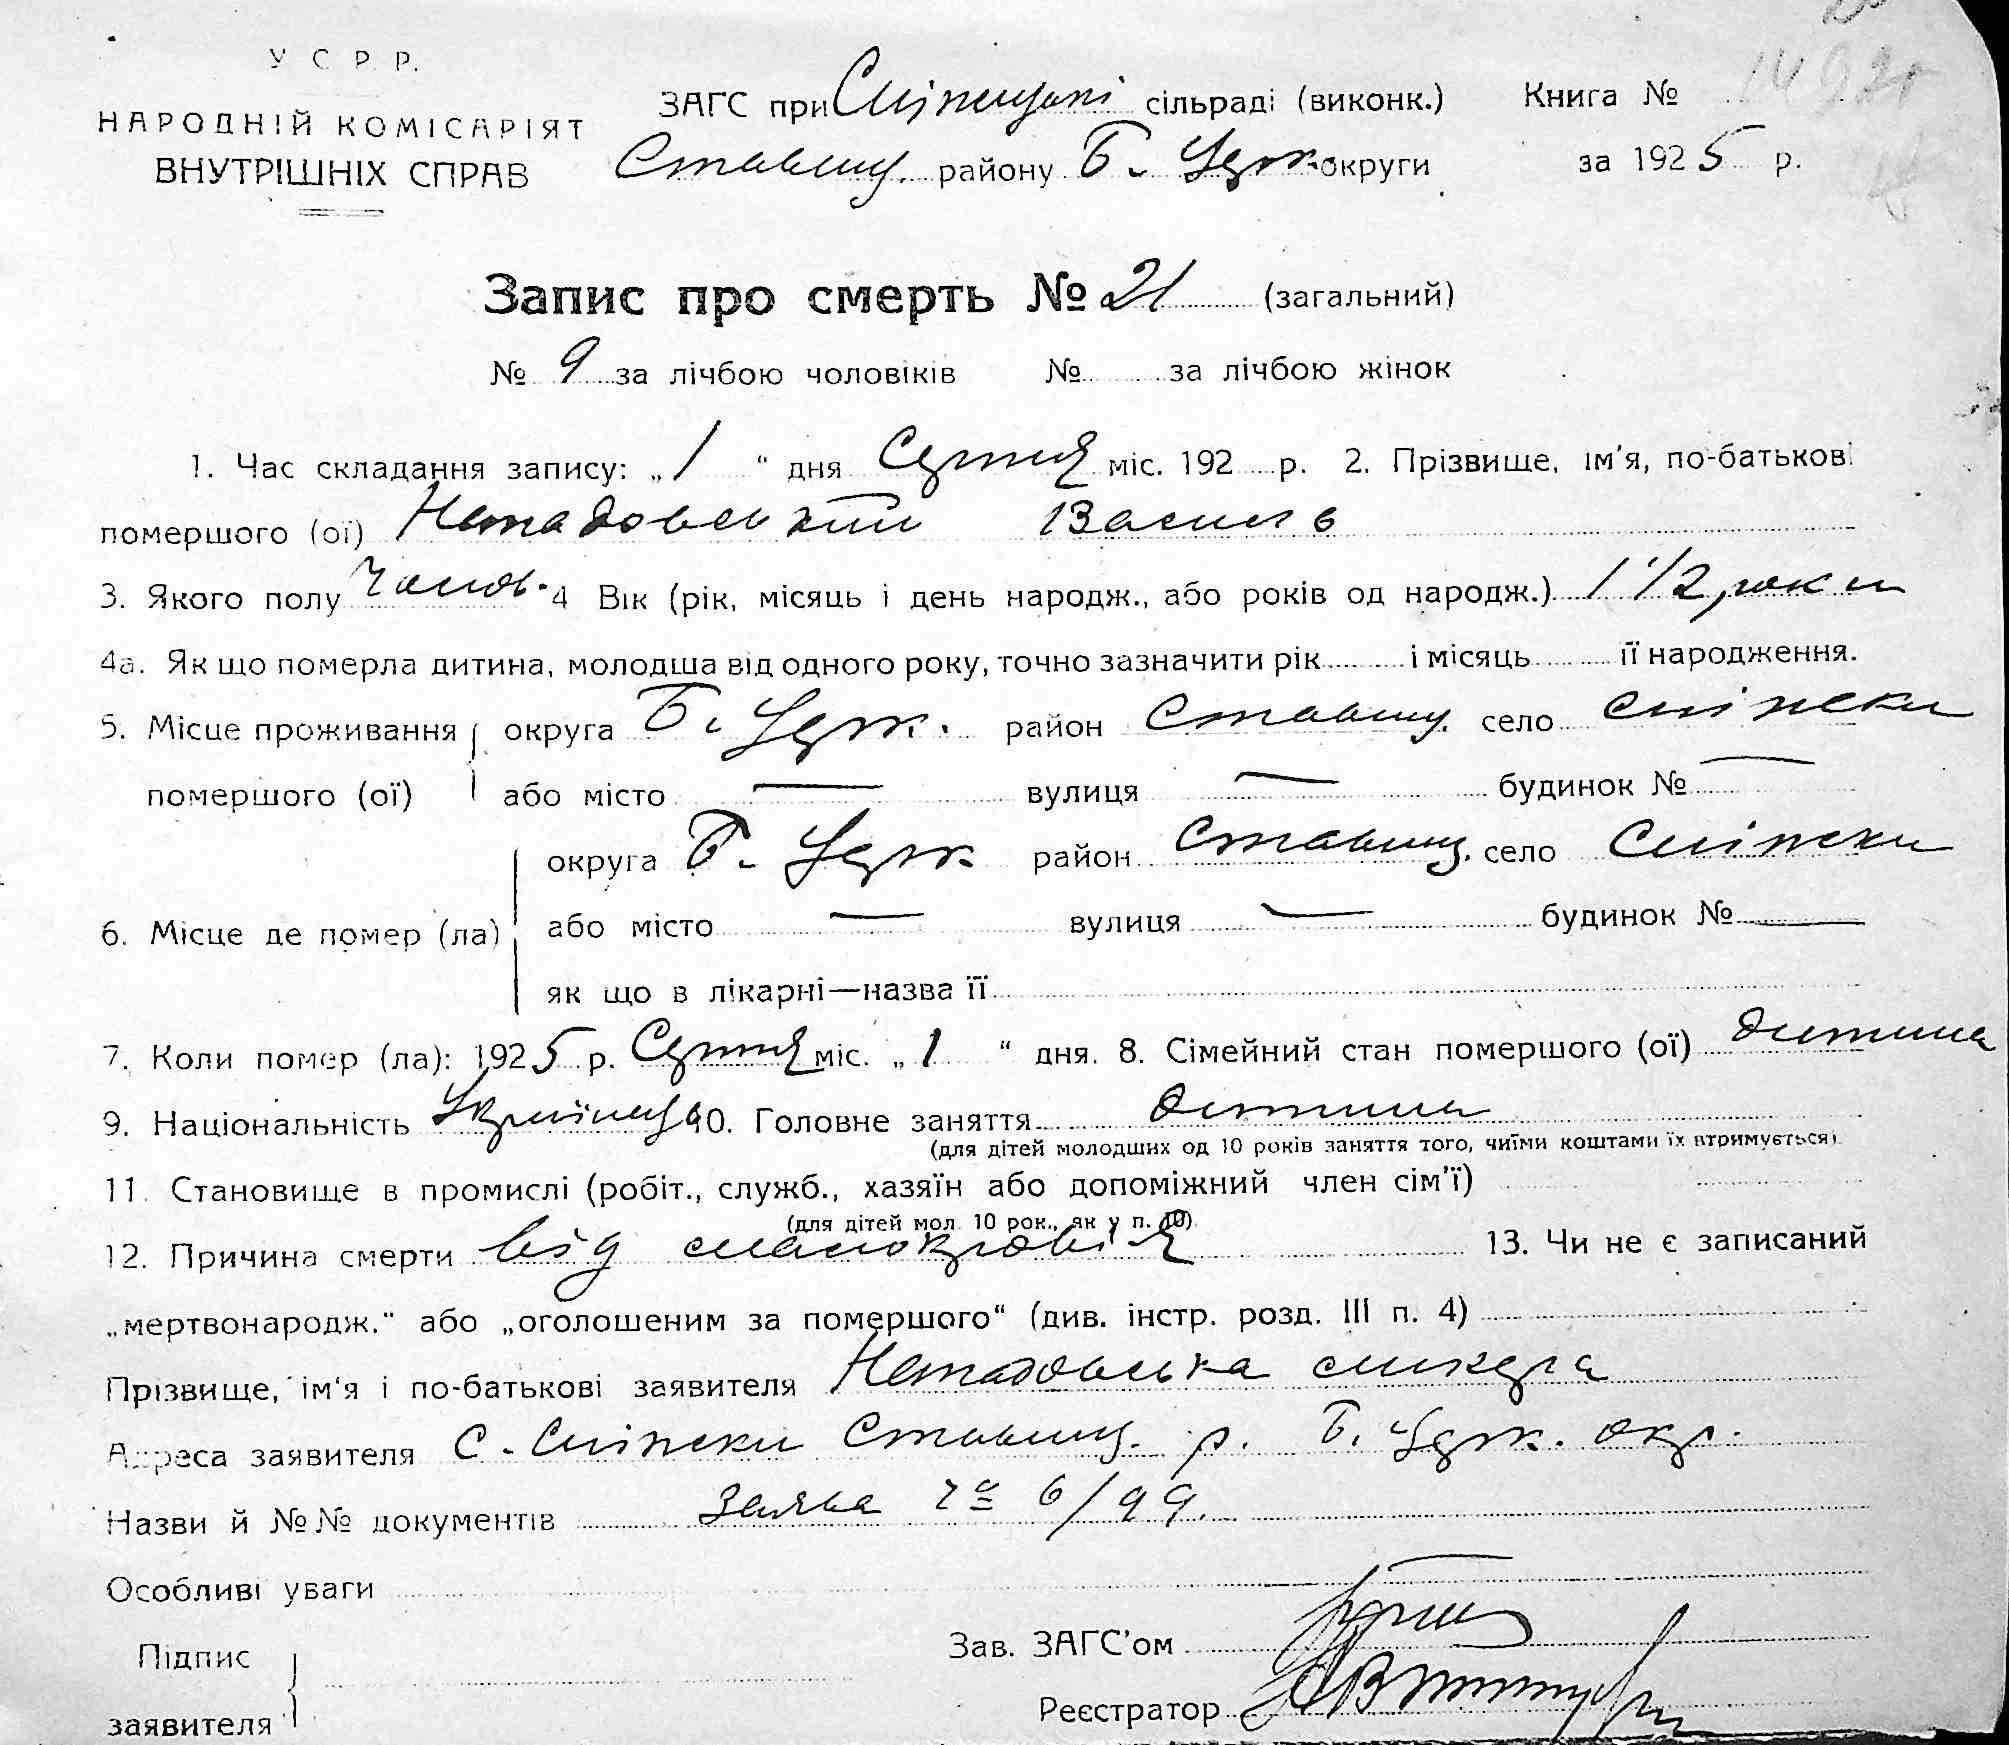 У С Р Р.
НАРОДНІЙ КОМІСАРІЯТ
ВНУТРІШНІХ СПРАВ
ЗАГС при сільраді (виконк.) Книга №
Ставищ. району Б. Церк. округи за 1925 р.
Запис про смерть № 21 (загальний)
№ 9 за лічбою чоловіків № за лічбою жінок
1. Час складання запису: „1“ дня Серпня міс. 192 р. 2. Прізвище, ім'я, по-батькові
помершого (ої) Василь
3. Якого полу Чолов. 4 Вік (рік, місяць і день народж., або років од народж.) 1 1/2 роки
4а. Як що померла дитина, молодша від одного року, точно зазначити рік і місяць її народження.
5. Місце проживання округа Б. Церк. район Ставищ. село
помершого (ої) або місто — вулиця — будинок № —
округа Б. Церк район Ставищ. село
6. Місце де помер (ла) або місто — вулиця — будинок № —
як що в лікарні—назва її
7. Коли помер (ла): 1925 р. Серпня міс. „1“ дня. 8. Сімейний стан помершого (ої) дитина
9. Національність Українець 10. Головне заняття дитина
(для дітей молодших од 10 років заняття того, чиїми коштами їх втримується)
11. Становище в промислі (робіт., служб., хазяїн або допоміжний член сім'ї)
(для дітей мол. 10 рок., як у п. 10)
12. Причина смерти від слабокровія 13. Чи не є записаний
„мертвонародж.“ або „оголошеним за помершого“ (див. інстр. розд. III п. 4)
Прізвище, ім'я і по-батькові заявителя
Адреса заявителя С. Ставищ. р. Б. Церк. окр.
Назви й №№ документів Заява 6/99.
Особливі уваги
Підпис
заявителя
Зав. ЗАГС'ом
Реєстратор